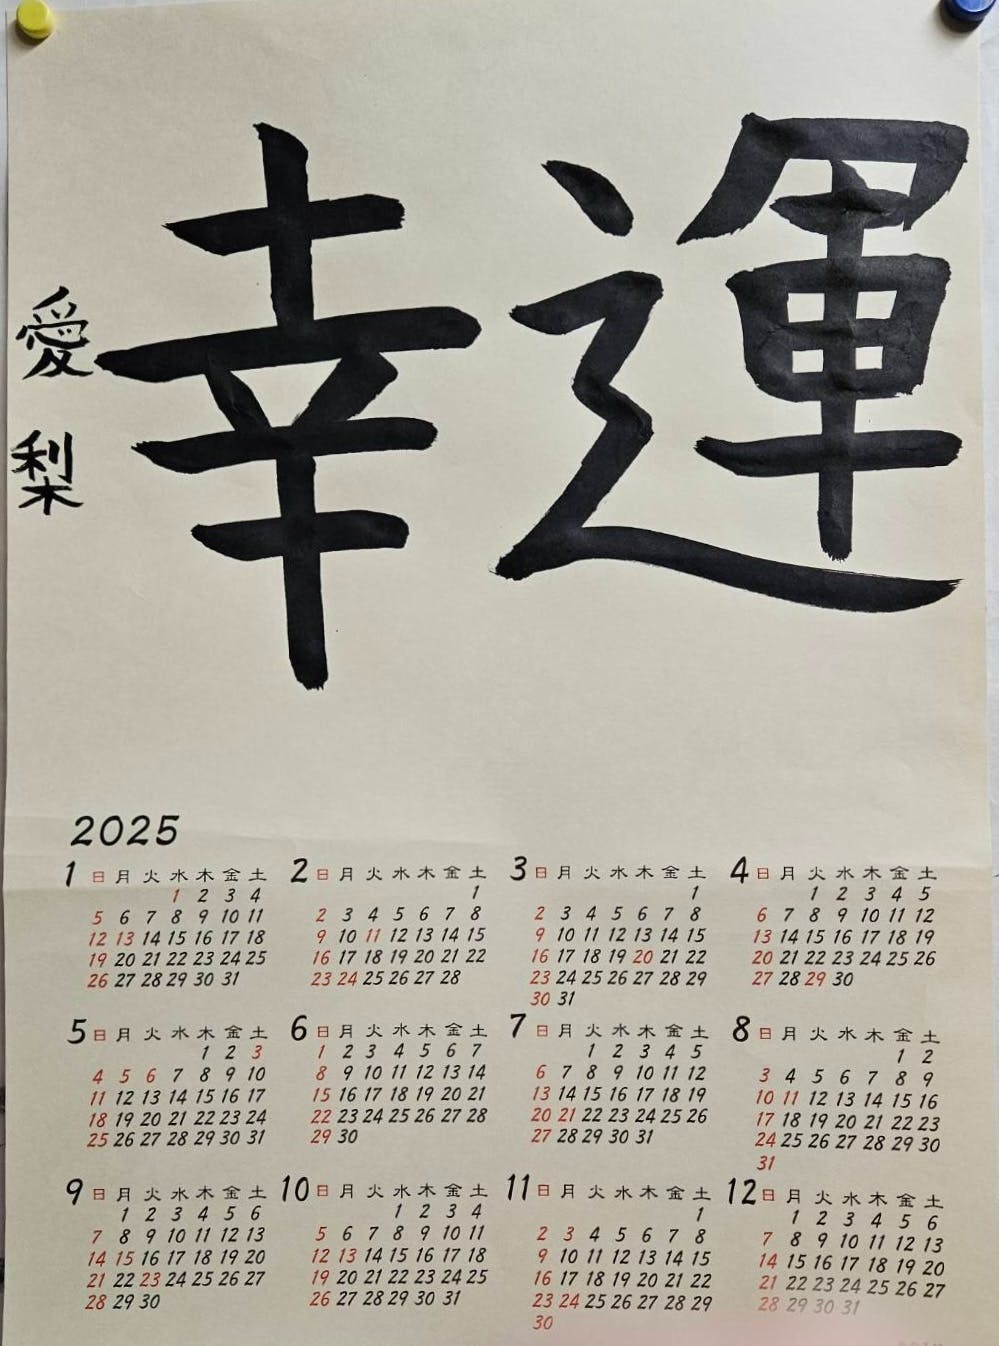 幸運
愛梨
2025
1
日 月 火 水 木 金 土
1 2 3 4
5 6 7 8 9 10 11
12 13 14 15 16 17 18
19 20 21 22 23 24 25
26 27 28 29 30 31
2
日 月 火 水 木 金 土
1
2 3 4 5 6 7 8
9 10 11 12 13 14 15
16 17 18 19 20 21 22
23 24 25 26 27 28
3
日 月 火 水 木 金 土
1
2 3 4 5 6 7 8
9 10 11 12 13 14 15
16 17 18 19 20 21 22
23 24 25 26 27 28 29
30 31
4
日 月 火 水 木 金 土
1 2 3 4 5
6 7 8 9 10 11 12
13 14 15 16 17 18 19
20 21 22 23 24 25 26
27 28 29 30
5
日 月 火 水 木 金 土
1 2 3
4 5 6 7 8 9 10
11 12 13 14 15 16 17
18 19 20 21 22 23 24
25 26 27 28 29 30 31
6
日 月 火 水 木 金 土
1 2 3 4 5 6 7
8 9 10 11 12 13 14
15 16 17 18 19 20 21
22 23 24 25 26 27 28
29 30
7
日 月 火 水 木 金 土
1 2 3 4 5
6 7 8 9 10 11 12
13 14 15 16 17 18 19
20 21 22 23 24 25 26
27 28 29 30 31
8
日 月 火 水 木 金 土
1 2
3 4 5 6 7 8 9
10 11 12 13 14 15 16
17 18 19 20 21 22 23
24 25 26 27 28 29 30
31
9
日 月 火 水 木 金 土
1 2 3 4 5 6
7 8 9 10 11 12 13
14 15 16 17 18 19 20
21 22 23 24 25 26 27
28 29 30
10
日 月 火 水 木 金 土
1 2 3 4
5 6 7 8 9 10 11
12 13 14 15 16 17 18
19 20 21 22 23 24 25
26 27 28 29 30 31
11
日 月 火 水 木 金 土
1
2 3 4 5 6 7 8
9 10 11 12 13 14 15
16 17 18 19 20 21 22
23 24 25 26 27 28 29
30
12
日 月 火 水 木 金 土
1 2 3 4 5 6
7 8 9 10 11 12 13
14 15 16 17 18 19 20
21 22 23 24 25 26 27
28 29 30 31